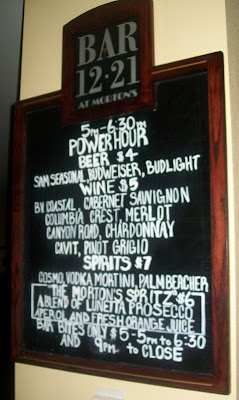 BAR
12·21
AT MORTON'S
5PM - 6:30PM
POWER HOUR
BEER $4
SAM SEASONAL, BUDWEISER, BUDLIGHT
WINE $5
BV COASTAL, CABERNET SAUVIGNON
COLUMBIA CREST, MERLOT
CANYON ROAD, CHARDONNAY
CAVIT, PINOT GRIGIO
SPIRITS $7
COSMO, VODKA MORTINI, PALM BEACHER
THE MORTON'S SPRITZ $6
A BLEND OF LUNETTA PROSECCO
APEROL AND FRESH ORANGE JUICE
BAR BITES ONLY $5 - 5PM TO 6:30
AND 9PM TO CLOSE